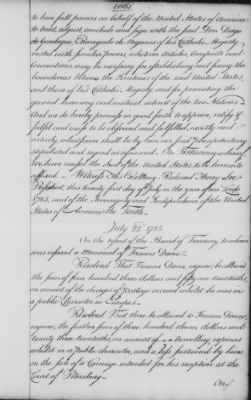 to him full powers on behalf of the United States of America
to treat, adjust, conclude and sign with the said Don Diego
de Gardoqui, of his Catholic Majesty,
vested with similar powers, whatever Articles, Compacts and
Conventions may be necessary for establishing and fixing the
boundaries between the Territories of the said United States,
and those of his Catholic Majesty, and for promoting the
general harmony and mutual interest of the two Nations.
And we do hereby promise in good faith to approve, ratify &
fulfil and cause to be observed and fulfilled, exactly and
entirely, whatsoever shall be by him our said
stipulated and signed as aforesaid. In Testimony whereof
we have caused the Seal of the United States to be hereunto
affixed. Witness His Excellency Richard Henry Lee
President, this twenty first day of July in the year of our Lord
1785, and of the Sovereignty and Independence of the United
States of America the Tenth.
July 22 1785.
On the report of the Board of Treasury, to whom
was referred a Memorial of Francis Dana.
Resolved That Francis Dana, esquire, be allowed
the sum of four hundred three dollars and fifty one ninetieths,
on account of the charges of Postage accrued whilst he was in
a public character in Europe.
Resolved That there be allowed to Francis Dana,
esquire, the further sum of three hundred eleven dollars and
twenty three ninetieths, on account of travelling expences
whilst in a public character, and a loss sustained by him
on the sale of a Carriage intended for his reception at the
Court of Petersburg.
On